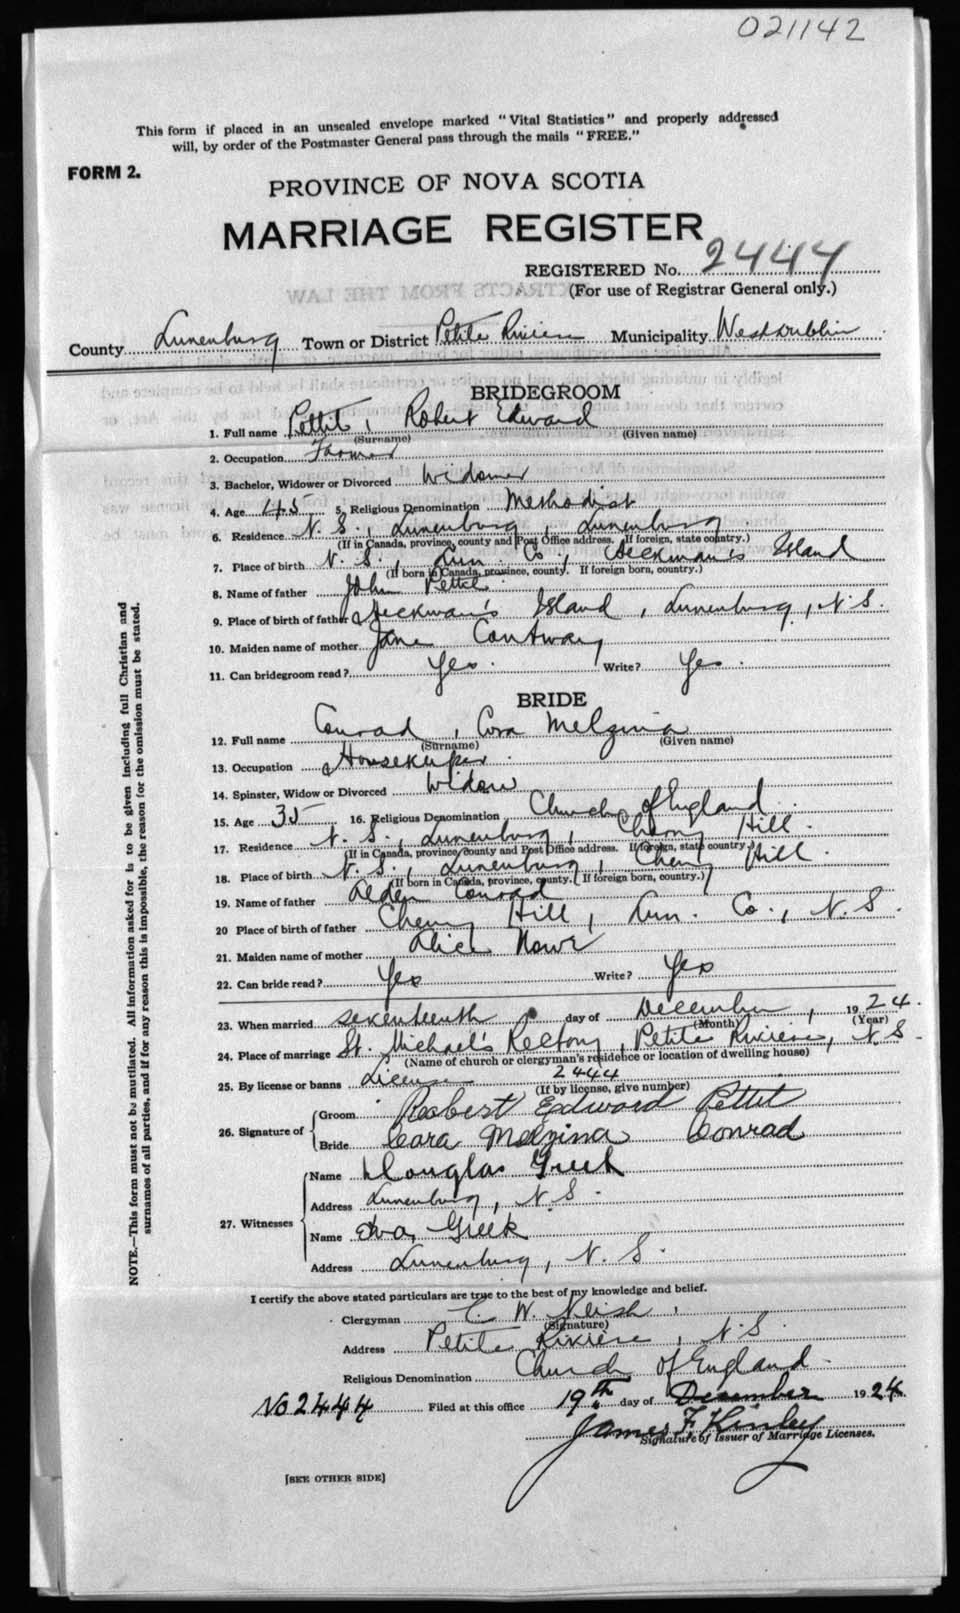 021142
This form if placed in an unsealed envelope marked "Vital Statistics" and properly addressed
will, by order of the Postmaster General pass through the mails "FREE."
FORM 2.
PROVINCE OF NOVA SCOTIA
MARRIAGE REGISTER
REGISTERED No. 2444
(For use of Registrar General only.)
County Lunenburg Town or District Petite Riviere Municipality West Dublin
BRIDEGROOM
1. Full name Pettit, Robert Edward
(Surname) (Given name)
2. Occupation Farmer
3. Bachelor, Widower or Divorced Widower
4. Age 45 5. Religious Denomination Methodist
6. Residence N. S., Lunenburg, Lunenburg
(If in Canada, province, county and Post Office address. If foreign, state country.)
7. Place of birth N. S., Lun. Co., Heckman's Island
(If born in Canada, province, county. If foreign born, country.)
8. Name of father John Pettit
9. Place of birth of father Heckman's Island, Lunenburg, N. S.
10. Maiden name of mother Jane Conway
11. Can bridegroom read? Yes. Write? Yes.
BRIDE
12. Full name Conrad, Cora Melzina
(Surname) (Given name)
13. Occupation Housekeeper
14. Spinster, Widow or Divorced Widow
15. Age 35 16. Religious Denomination Church of England
17. Residence N. S., Lunenburg, Cherry Hill.
(If in Canada, province, county and Post Office address. If foreign, state country.)
18. Place of birth N. S., Lunenburg, Cherry Hill.
(If born in Canada, province, county. If foreign born, country.)
19. Name of father Alden Conrad
20 Place of birth of father Cherry Hill, Lun. Co., N. S.
21. Maiden name of mother Alice Nowe
22. Can bride read? Yes Write? Yes
23. When married seventeenth day of December, 1924.
(Month) (Year)
24. Place of marriage St. Michael's Rectory, Petite Riviere, N. S
(Name of church or clergyman's residence or location of dwelling house)
25. By license or banns License 2444
(If by license, give number)
26. Signature of
Groom Robert Edward Pettit
Bride Cora Melzina Conrad
27. Witnesses
Name Douglas Greek
Address Lunenburg, N. S.
Name Eva Greek
Address Lunenburg, N. S.
I certify the above stated particulars are true to the best of my knowledge and belief.
Clergyman C. W. Neish,
(Signature)
Address Petite Riviere, N. S.
Religious Denomination Church of England.
No 2444 Filed at this office 19th day of December 1924.
James F. Kinley
Signature of Issuer of Marriage Licenses.
[SEE OTHER SIDE]
NOTE.—This form must not be mutilated. All information asked for is to be given including full Christian and
surnames of all parties, and if for any reason this is impossible, the reason for the omission must be stated.